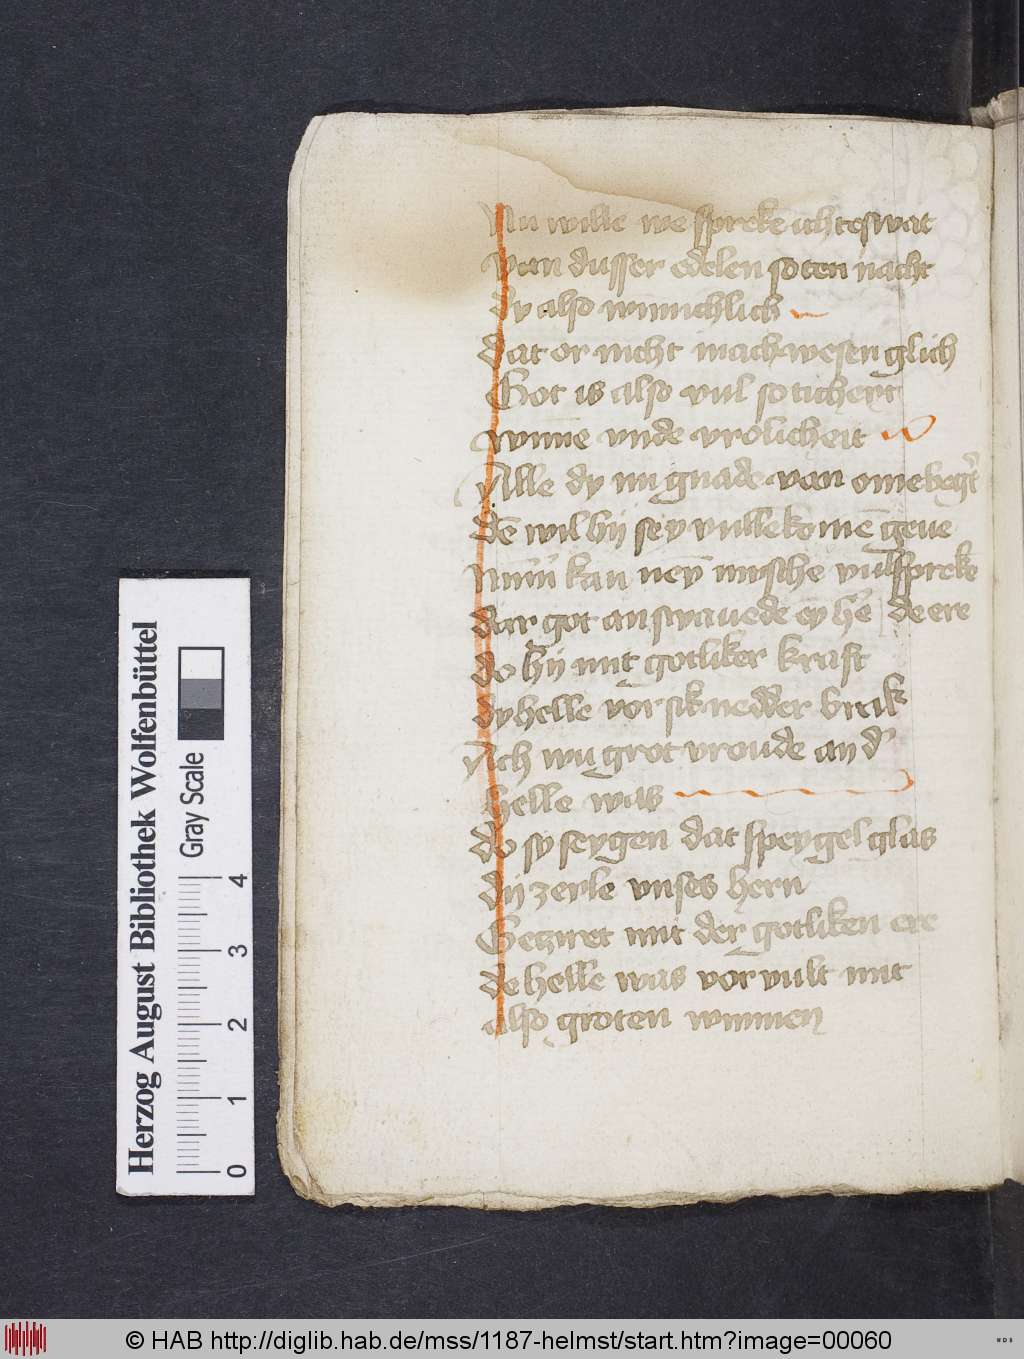 Nu wille we spreke ichteswat
van dusser edelen soten nacht
dy also wunnichlich
dat or nicht mach wesen glich
Got is also vul soticheyt
wūne vnde vrolicheit
Alle dy nu gnade van ome begͬt
dē wil hij sey vullekomē geue
kan neȳ mīsche vulspreke
dar got an swauede ey hē de ere
do hij mit gotliker kraft
dy helle vor sik nedder brak
Ach wu grot vroude an dʾ
helle was
do sy seygen dat speygel glas
dij zeyle vnses hern
Getziret mit der gotliken ere
de helle was vor vult mit
also groten wunnen
Herzog August Bibliothek Wolfenbüttel
Gray Scale
0 1 2 3 4
© HAB http://diglib.hab.de/mss/1187-helmst/start.htm?image=00060